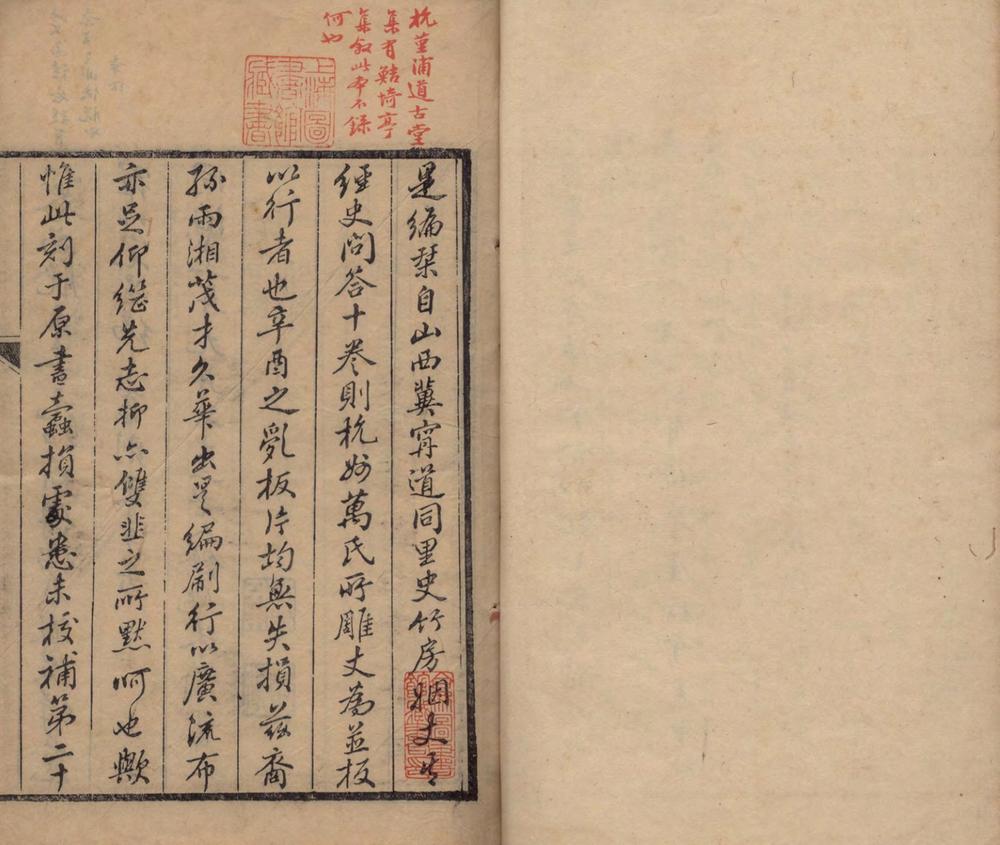 杭堇浦道古堂
集有鲒埼亭
集敘此本不錄
何也
上海圖書館藏書
是編棨自山西冀寧道同里史竹房姻丈其
經史問答十卷則杭州萬氏所雕丈為並板
以行者也辛酉之亂板片均無失損茲裔
孫雨湘茂才久華出是編刷行以廣流布
亦足仰繼先志抑亦雙韭之所默呵也歟
惟此刻于原書蠹損處悉未校補第二十